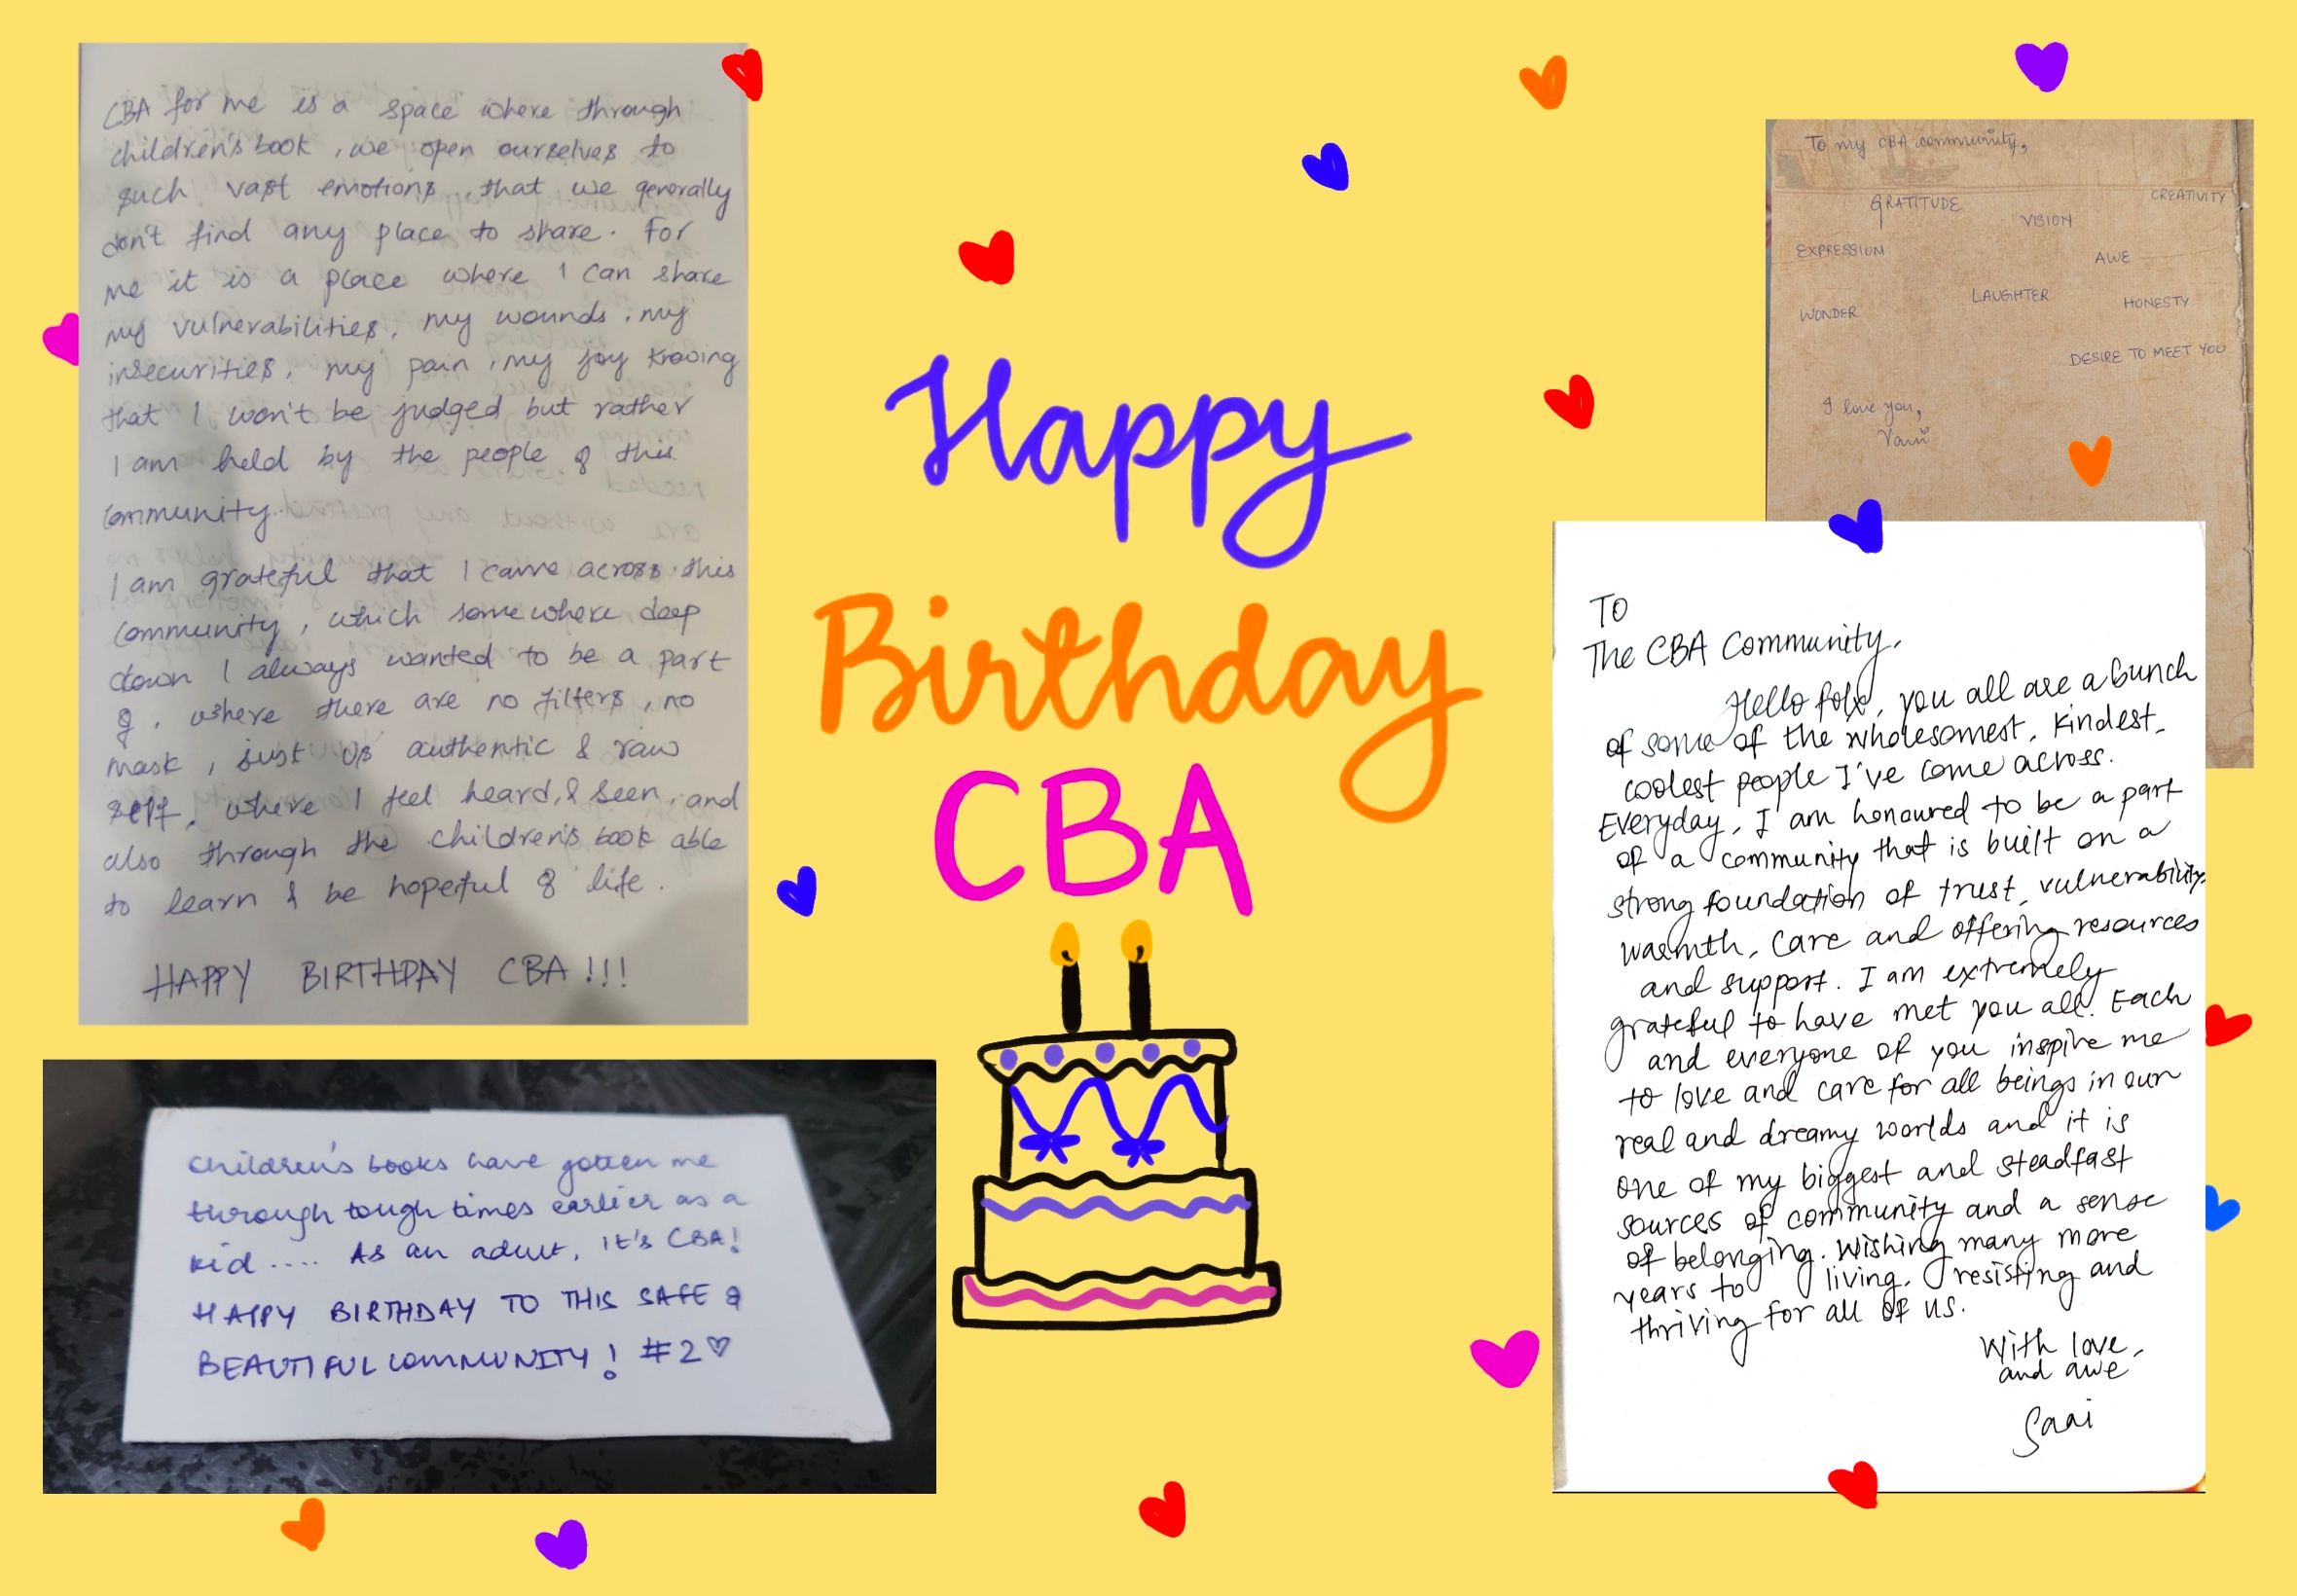 CBA for me is a space where through
children's book, we open ourselves to
such vast emotions, that we generally
don't find any place to share. For
me it is a place where I can share
my vulnerabilities, my wounds, my
insecurities, my pain, my joy knowing
that I won't be judged but rather
I am held by the people of this
community.
I am grateful that I came across this
community, which somewhere deep
down I always wanted to be a part
of, where there are no filters, no
mask, just us authentic & raw
self, where I feel heard, & seen, and
also through the children's book able
to learn & be hopeful of life.
HAPPY BIRTHDAY CBA!!!
Children's books have gotten me
through tough times earlier as a
kid.... As an adult, it's CBA!
HAPPY BIRTHDAY TO THIS SAFE &
BEAUTIFUL COMMUNITY! #2♡
Happy
Birthday
CBA
To my CBA community,
GRATITUDE
CREATIVITY
VISION
EXPRESSION
AWE
LAUGHTER
HONESTY
WONDER
DESIRE TO MEET YOU
I love you,
Vani
To
The CBA Community,
Hello folx, you all are a bunch
of some of the wholesomest, kindest,
coolest people I've come across.
Everyday, I am honoured to be a part
of a community that is built on a
strong foundation of trust, vulnerability,
warmth, care and offering resources
and support. I am extremely
grateful to have met you all. Each
and everyone of you inspire me
to love and care for all beings in our
real and dreamy worlds and it is
one of my biggest and steadfast
sources of community and a sense
of belonging. Wishing many more
years to living, resisting and
thriving for all of us.
With love,
and awe
Saai